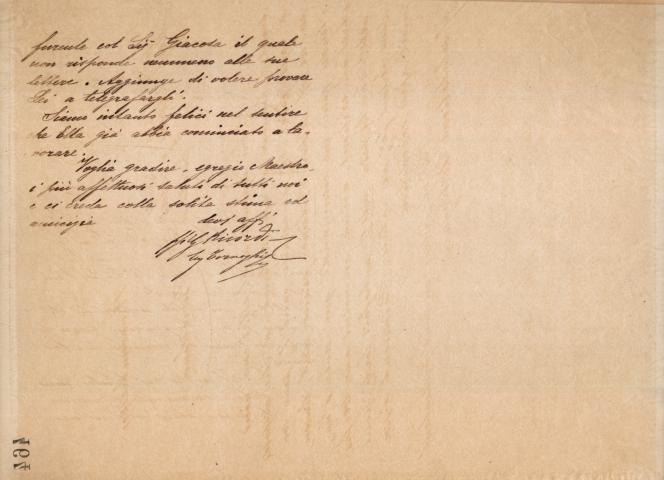 furente col Sig. Giacosa il quale
non risponde nemmeno alle sue
lettere. Aggiunge di volere provare
Lei a telegrafargli.
Siamo intanto felici nel sentire
che Ella già abbia cominciato a la-
vorare.
Voglia gradire, egregio Maestro,
i più affettuosi saluti di tutti noi
e ci creda colla solita stima ed
amicizia
devi affi
G. Ricordi
464